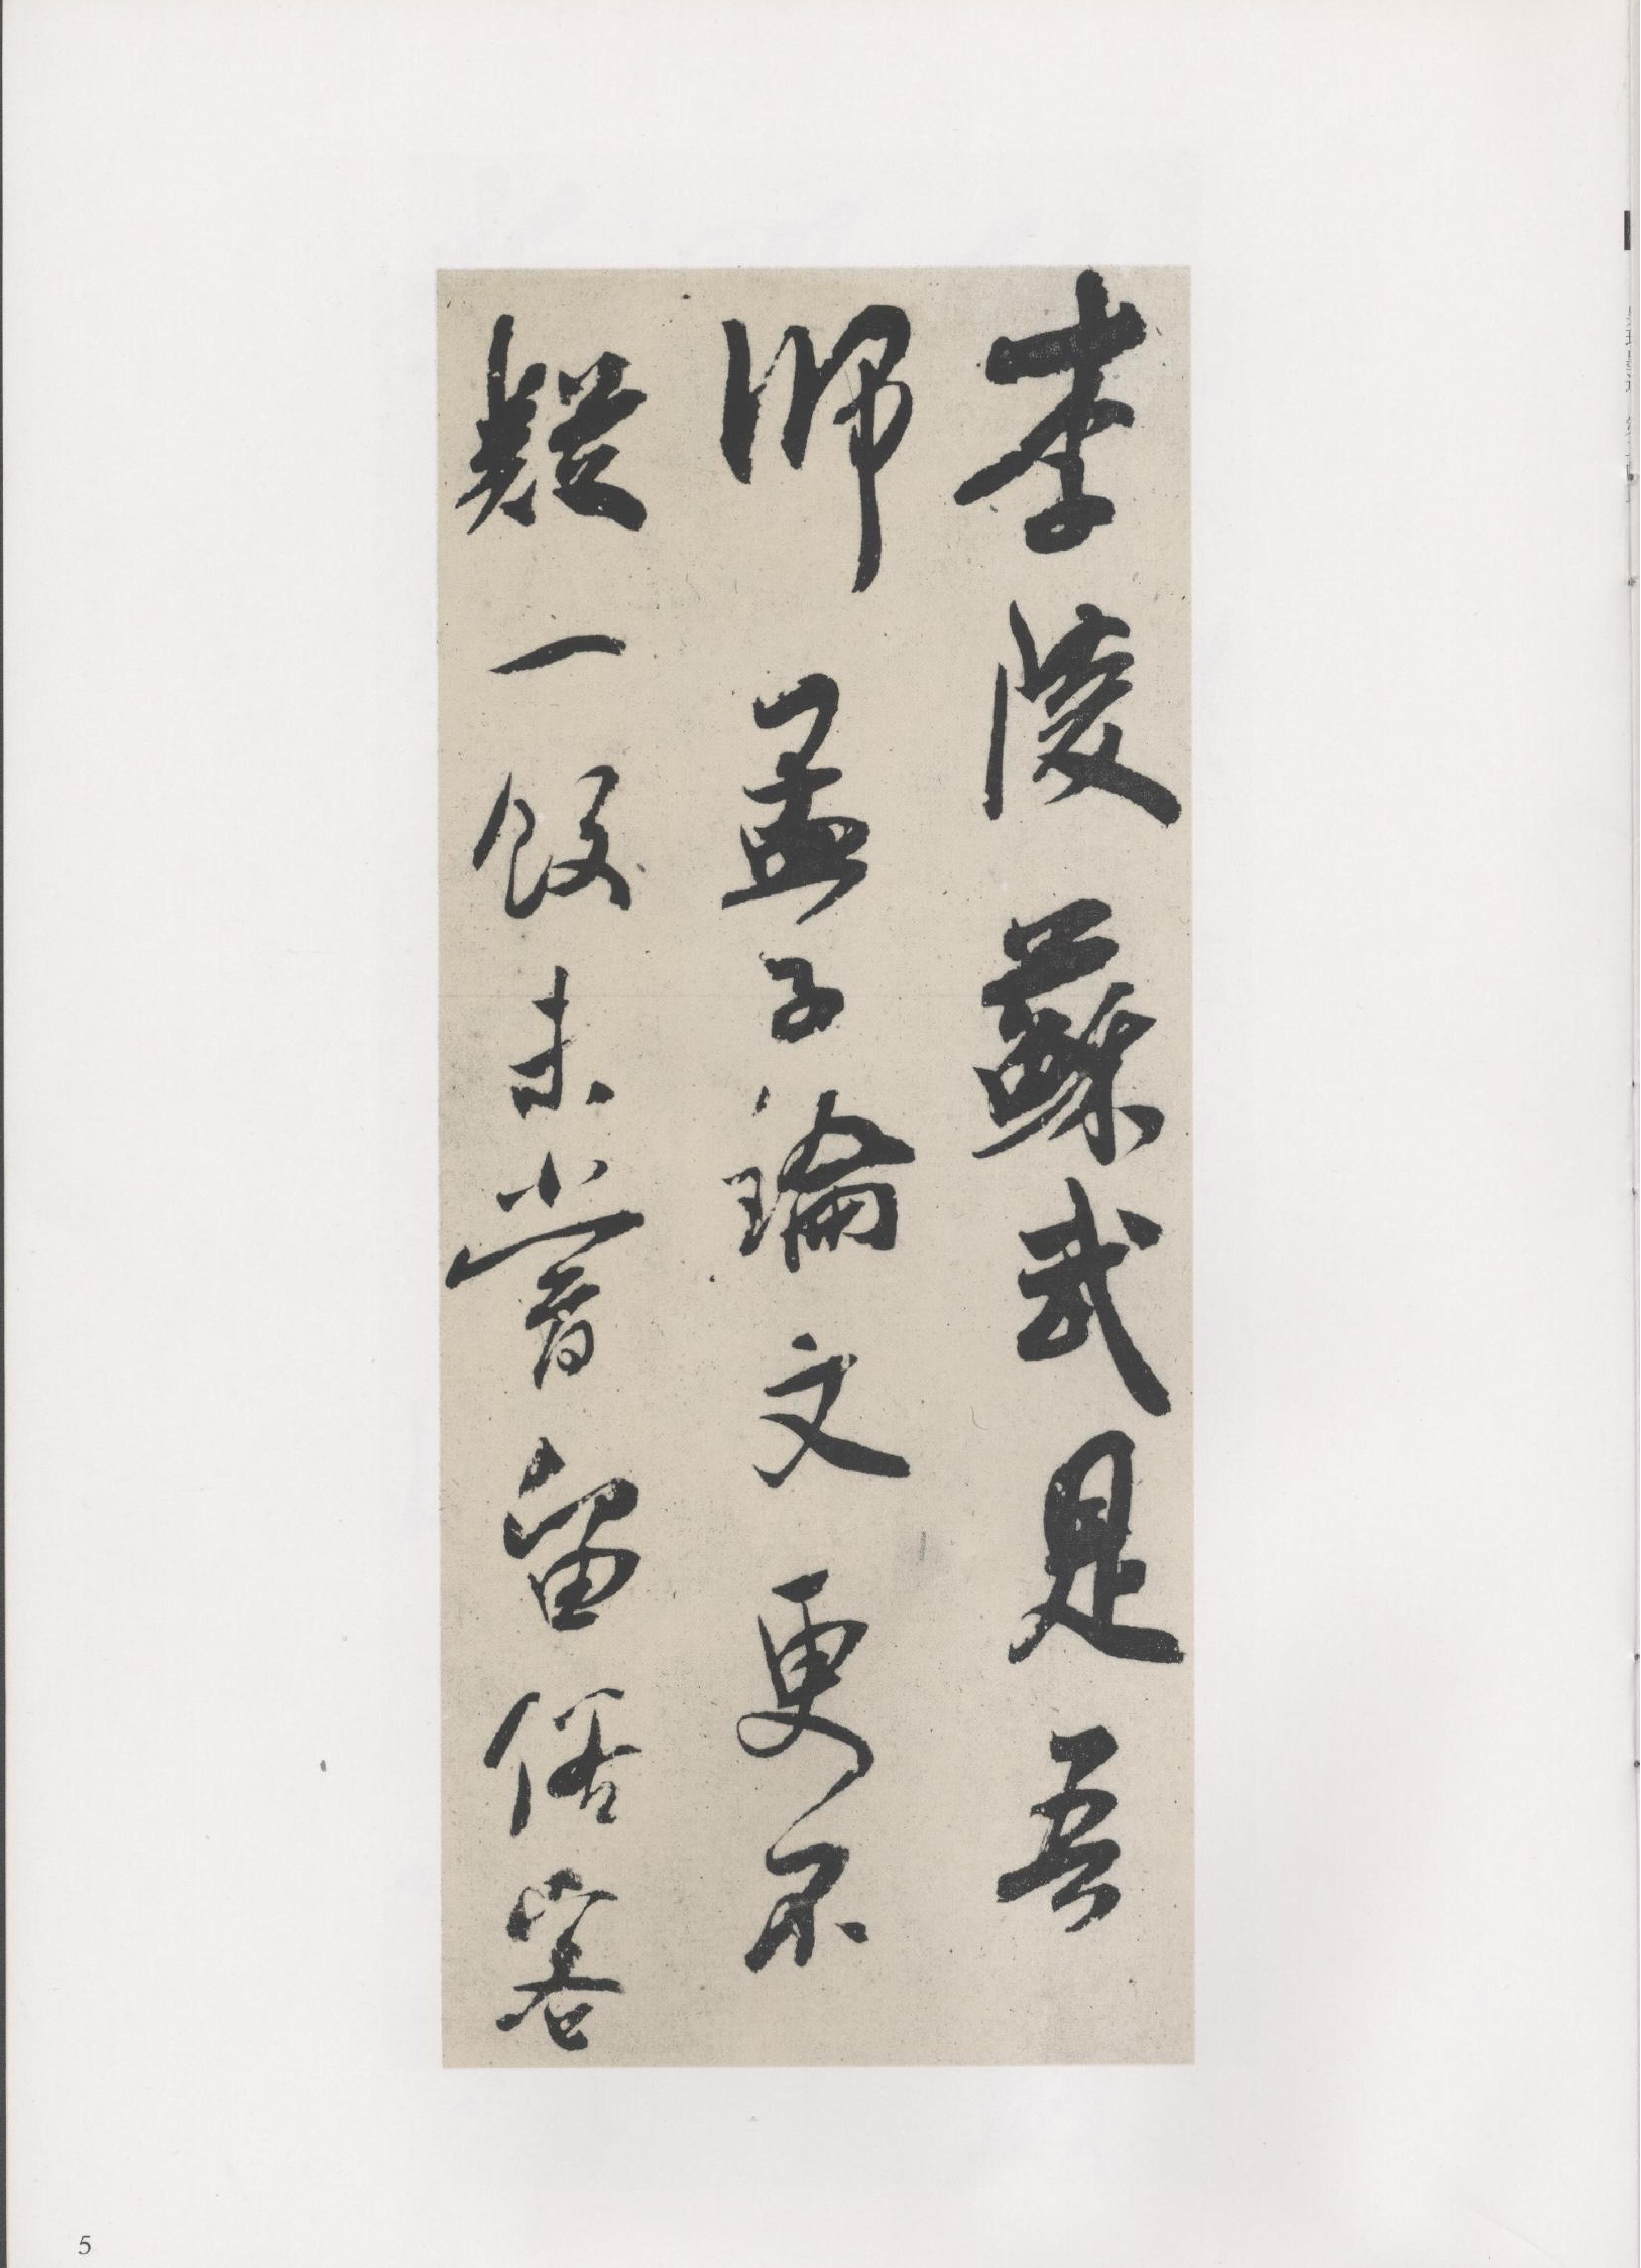 李陵蘇武是吾
師孟子論文更不
疑一飯未嘗留俗客
5